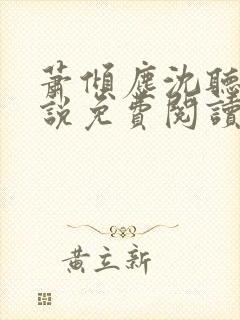 蕭傾塵沈聽
說免費閱讀
黃立新